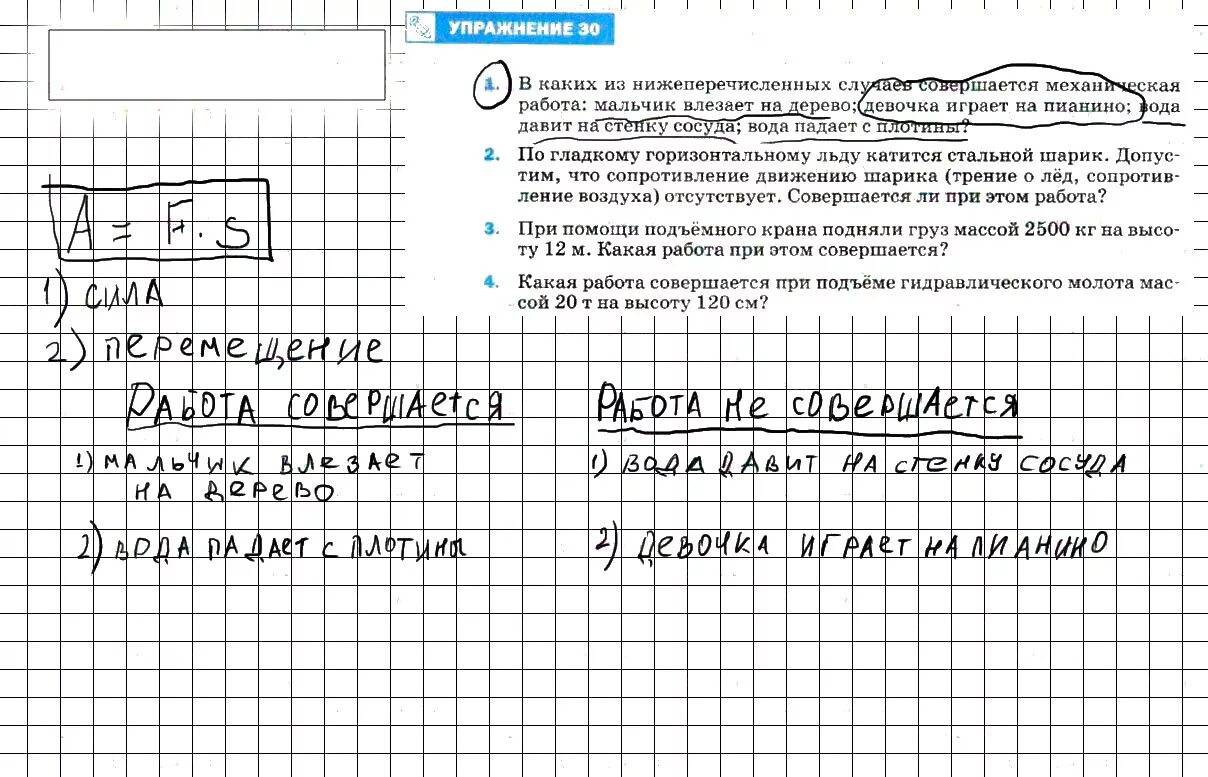 УПРАЖНЕНИЕ 30
1. В каких из нижеперечисленных случаев совершается механическая
работа: мальчик влезает на дерево; девочка играет на пианино; вода
давит на стенку сосуда; вода падает с плотины?
2. По гладкому горизонтальному льду катится стальной шарик. Допус-
тим, что сопротивление движению шарика (трение о лёд, сопротив-
ление воздуха) отсутствует. Совершается ли при этом работа?
3. При помощи подъёмного крана подняли груз массой 2500 кг на высо-
ту 12 м. Какая работа при этом совершается?
4. Какая работа совершается при подъёме гидравлического молота мас-
сой 20 т на высоту 120 см?
A = F · S
1) СИЛА
2) ПЕРЕМЕЩЕНИЕ
РАБОТА СОВЕРШАЕТСЯ
1) МАЛЬЧИК ВЛЕЗАЕТ
НА ДЕРЕВО
2) ВОДА ПАДАЕТ С ПЛОТИНЫ
РАБОТА НЕ СОВЕРШАЕТСЯ
1) ВОДА ДАВИТ НА СТЕНКУ СОСУДА
2) ДЕВОЧКА ИГРАЕТ НА ПИАНИНО